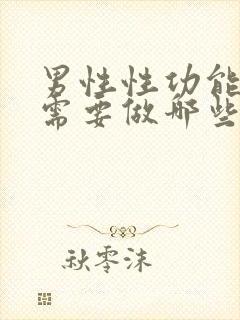 男性性功能
需要做那些
秋零沫